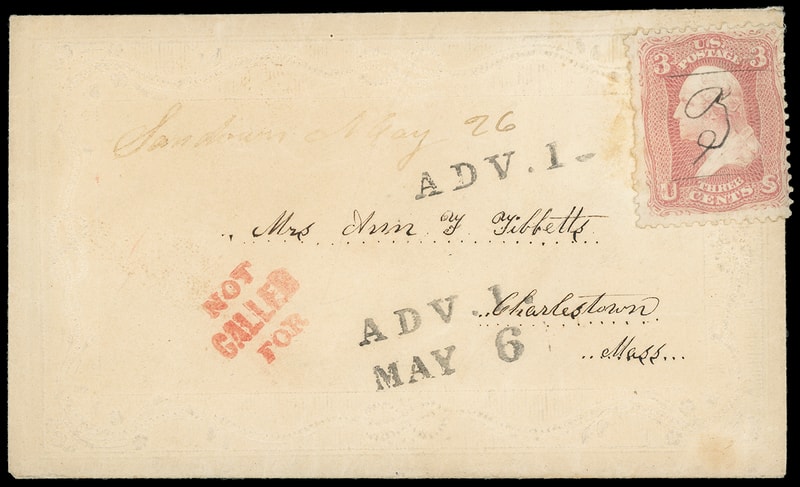 3 U.S. 3
POSTAGE
U THREE S
CENTS
May 26
ADV.1-
Mrs Ann Y Tibbetts
NOT
CALLED
FOR
ADV.1.
Charlestown
MAY 6
Mass...